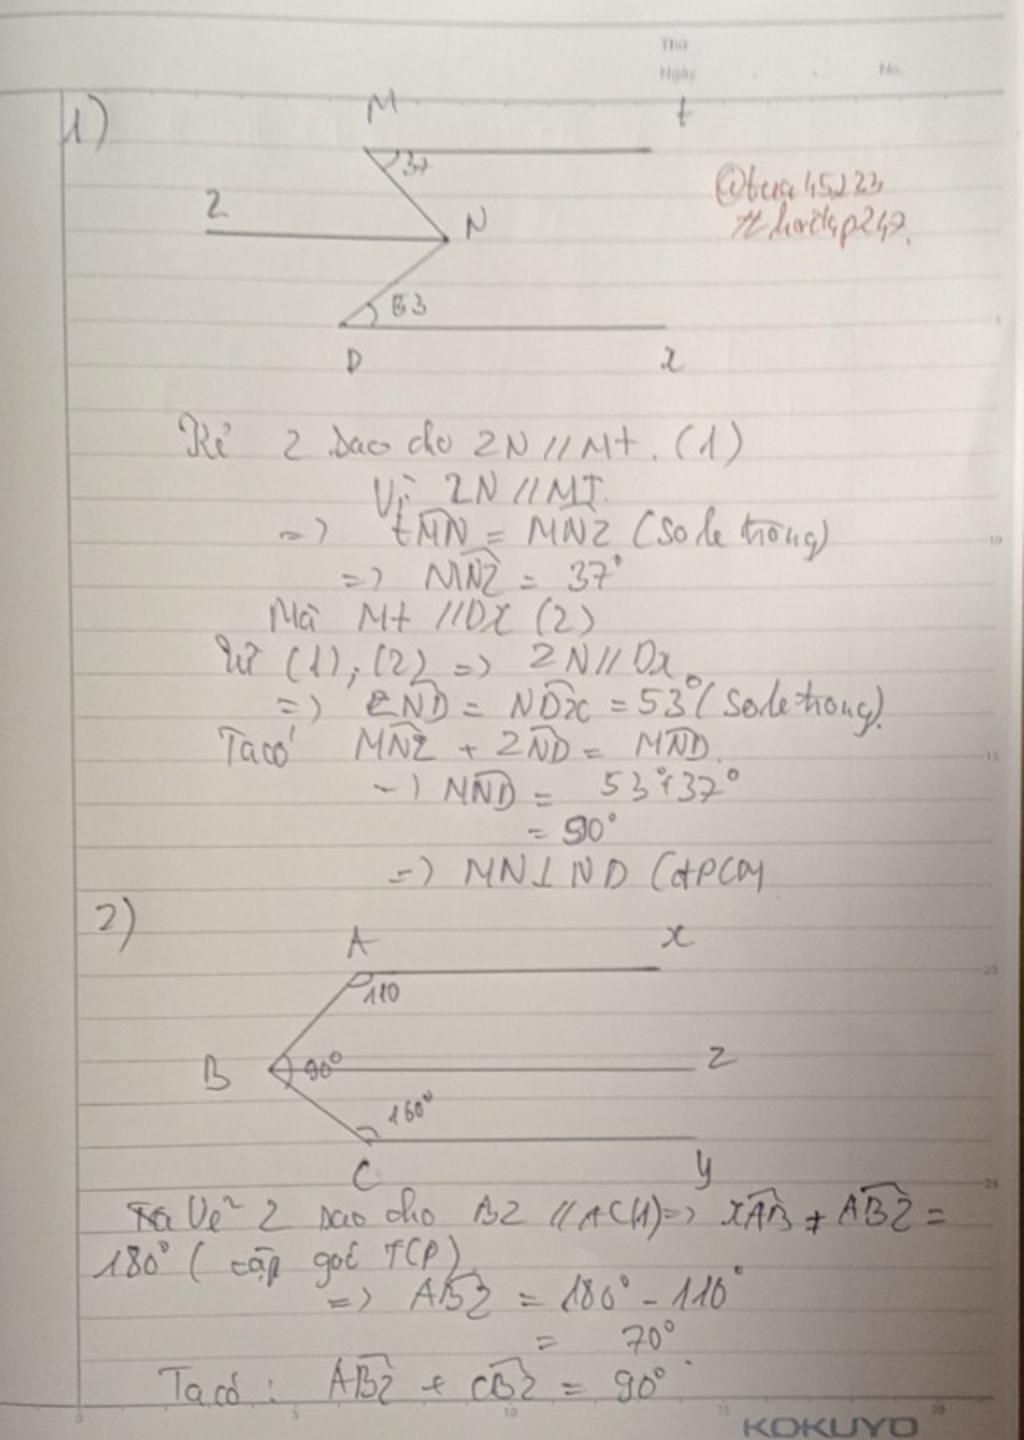 Thứ
Ngày . . No.
1)
M t
37
@tua45223
#hoidap247.
z
N
53
D x
Kẻ z sao cho zN // Mt. (1)
Vì zN // Mt.
=> tMN = MNz (so le trong)
=> MNz = 37°
Mà Mt // Dx (2)
Từ (1), (2) => zN // Dx
=> zND = NDx = 53° (so le trong).
Ta có MNz + zND = MND.
=> MND = 53° + 37°
= 90°
=> MN ⊥ ND (đPCM)
2)
A x
110
B 90° z
160°
C y
Vẽ z sao cho Bz // Ax (1) => xAB + ABz =
180° (cặp góc TCP)
=> ABz = 180° - 110°
= 70°
Ta có : ABz + CBz = 90°
KOKUYO